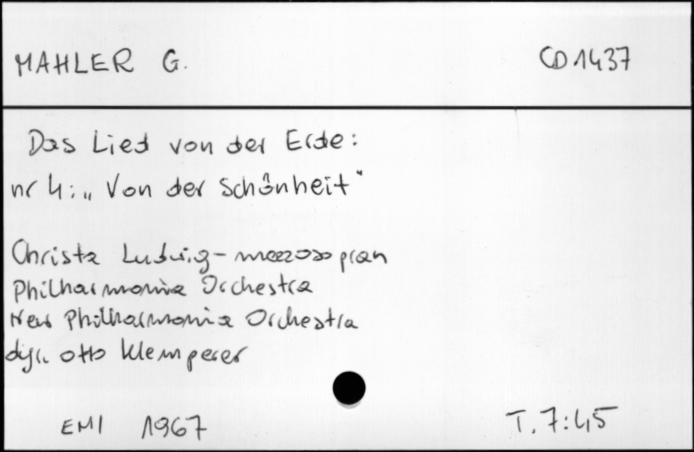 MAHLER G.
CD 1437
Das Lied von der Erde:
nr 4: „Von der Schönheit"
Christa Ludwig - mezzosopran
Philharmonia Orchestra
New Philharmonia Orchestra
dyr. Otto Klemperer
EMI 1967
T. 7:45